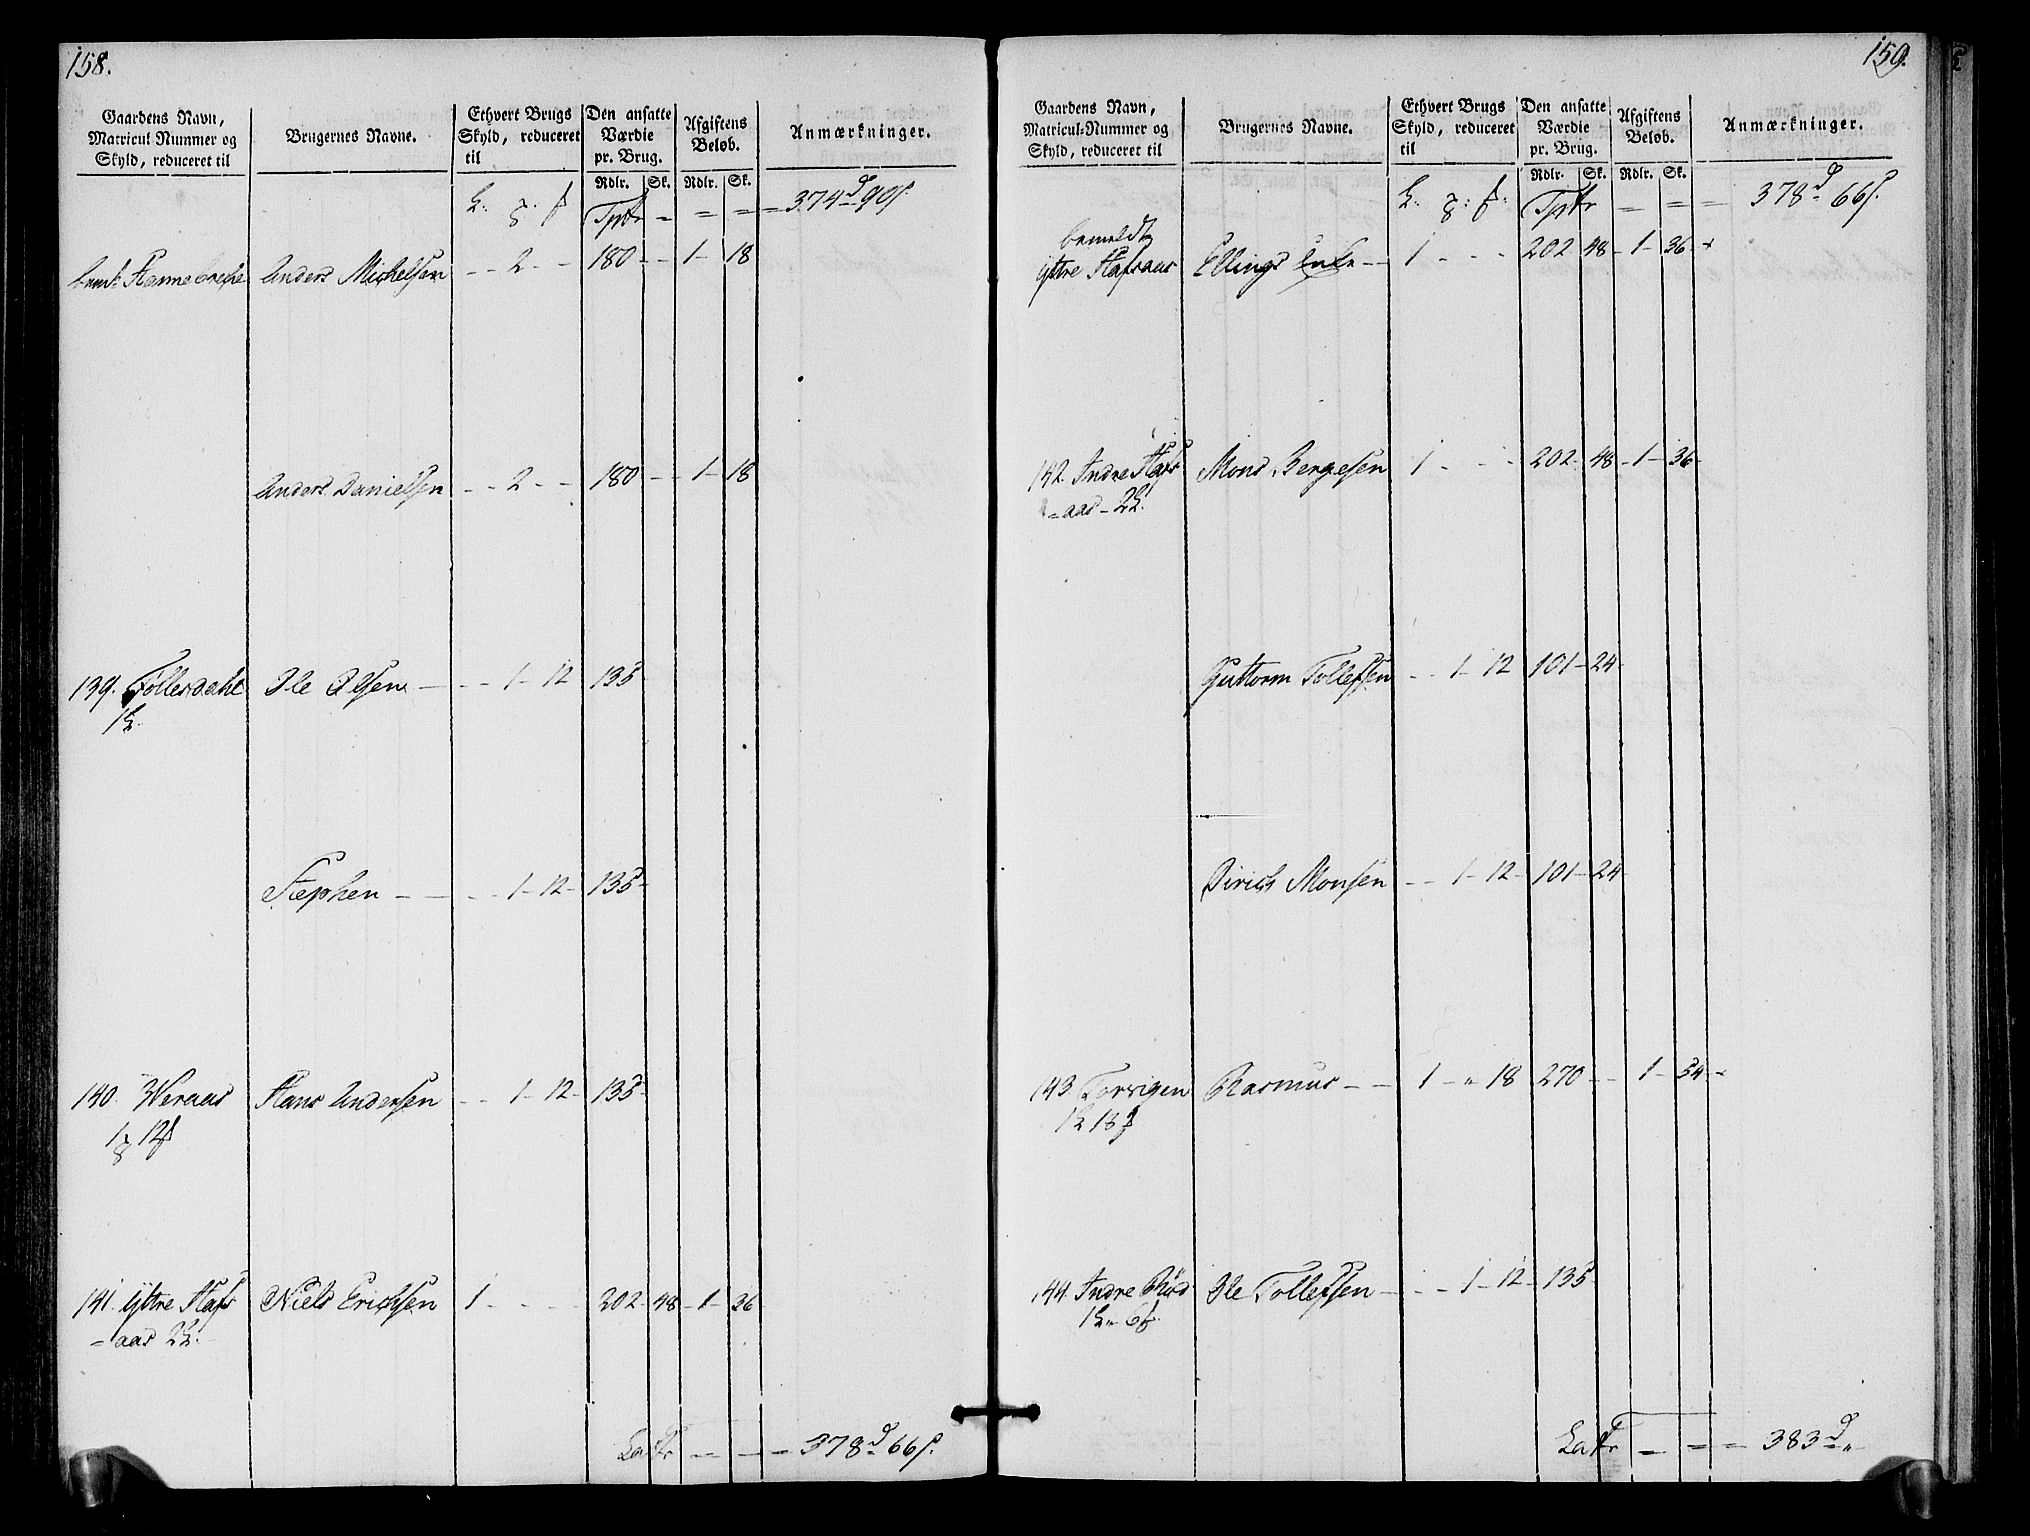 158.
Gaardens Navn, Matricul Nummer og Skyld, reduceret til | Brugernes Navne. | Ethvert Brugs Skyld, reduceret til | Den ansatte Værdie pr. Brug. | Afgiftens Beløb. | Anmærkninger.
Rdlr. Sk. Rdlr. Sk.
Tptr - = = = 374 d 90 s.
bemt Hannebrekke Anders Michelsen - - 2 - - 180 - - 1 - 18
Anders Danielsen - - 2 - - 180 - - 1 - 18
139. Follesdahl Ole Olsen - - - 1 - 12 - 135
1
Stephen - - - - 1 - 12 - 135 -
140. Weraas Hans Andersen - - 1 - 12 - 135 -
1 12
141. Yttre Hafs Niels Erichsen 1 - - - - 202 - 48 - 1 - 36
= aas 2
Latr = - = 378 d 66 s.
159.
Gaardens Navn, Matricul-Nummer og Skyld, reduceret til | Brugernes Navne. | Ethvert Brugs Skyld, reduceret til | Den ansatte Værdie pr. Brug. | Afgiftens Beløb. | Anmærkninger.
Rdlr. Sk. Rdlr. Sk.
Tptr = = = 378 d 66 s.
bemeldt
Yttre Hafsaas Ellings Enke - - 1 - - - 202 48 - 1 - 36 -
142. Indre Hafs Mons Bergesen 1 - - - 202 - 48 - 1 - 36 -
= aas - 2
Guttorm Tollefsen - - 1 - 12 101 - 24 -
Dirich Monsen - - 1 - 12 - 101 - 24
143. Torvigen Rasmus - - 1 - " 18 270 - - 1 - 54 -
1 18
144. Indre Bø Ole Tollefsen - - - 1 - 12 - 135
1 " 6
Latr = = = 383 d "